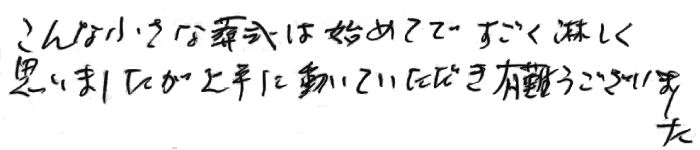 こんな小さな葬式は始めてですごく淋しく
思いましたが上手に動いていただき有難うございまし
た